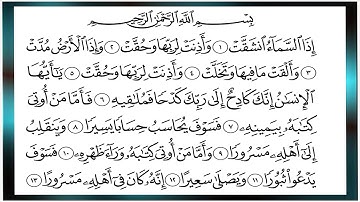 بِسْمِ اللَّهِ الرَّحْمَٰنِ الرَّحِيمِ
إِذَا السَّمَاءُ انشَقَّتْ ١ وَأَذِنَتْ لِرَبِّهَا وَحُقَّتْ ٢ وَإِذَا الْأَرْضُ مُدَّتْ
٣ وَأَلْقَتْ مَا فِيهَا وَتَخَلَّتْ ٤ وَأَذِنَتْ لِرَبِّهَا وَحُقَّتْ ٥ يَٰأَيُّهَا
الْإِنسَٰنُ إِنَّكَ كَادِحٌ إِلَىٰ رَبِّكَ كَدْحًا فَمُلَٰقِيهِ ٦ فَأَمَّا مَنْ أُوتِيَ
كِتَٰبَهُۥ بِيَمِينِهِۦ ٧ فَسَوْفَ يُحَاسَبُ حِسَابًا يَسِيرًا ٨ وَيَنقَلِبُ
إِلَىٰ أَهْلِهِۦ مَسْرُورًا ٩ وَأَمَّا مَنْ أُوتِيَ كِتَٰبَهُۥ وَرَاءَ ظَهْرِهِۦ ١٠ فَسَوْفَ
يَدْعُوا ثُبُورًا ١١ وَيَصْلَىٰ سَعِيرًا ١٢ إِنَّهُۥ كَانَ فِي أَهْلِهِۦ مَسْرُورًا ١٣